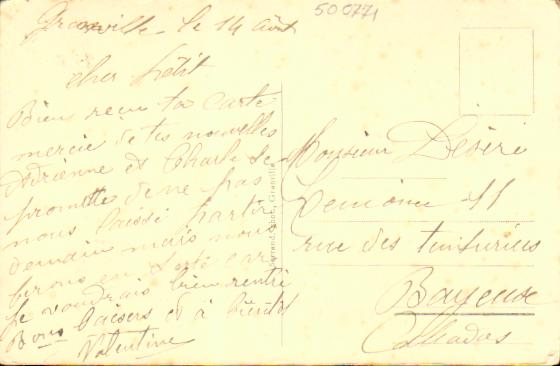 Granville le 14 août
500771
cher petit
Bien reçu ta carte
mercie de tes nouvelles
Adrienne et Charle se
promette de ne pas
nous laissé partir
demain mais nous
ferons en sorte car
je voudrais bien rentré
Bons baisers et à bientôt
Valentine
Granville
Monsieur Désiré
11
rue des teinturiers
Bayeuse
Calvados